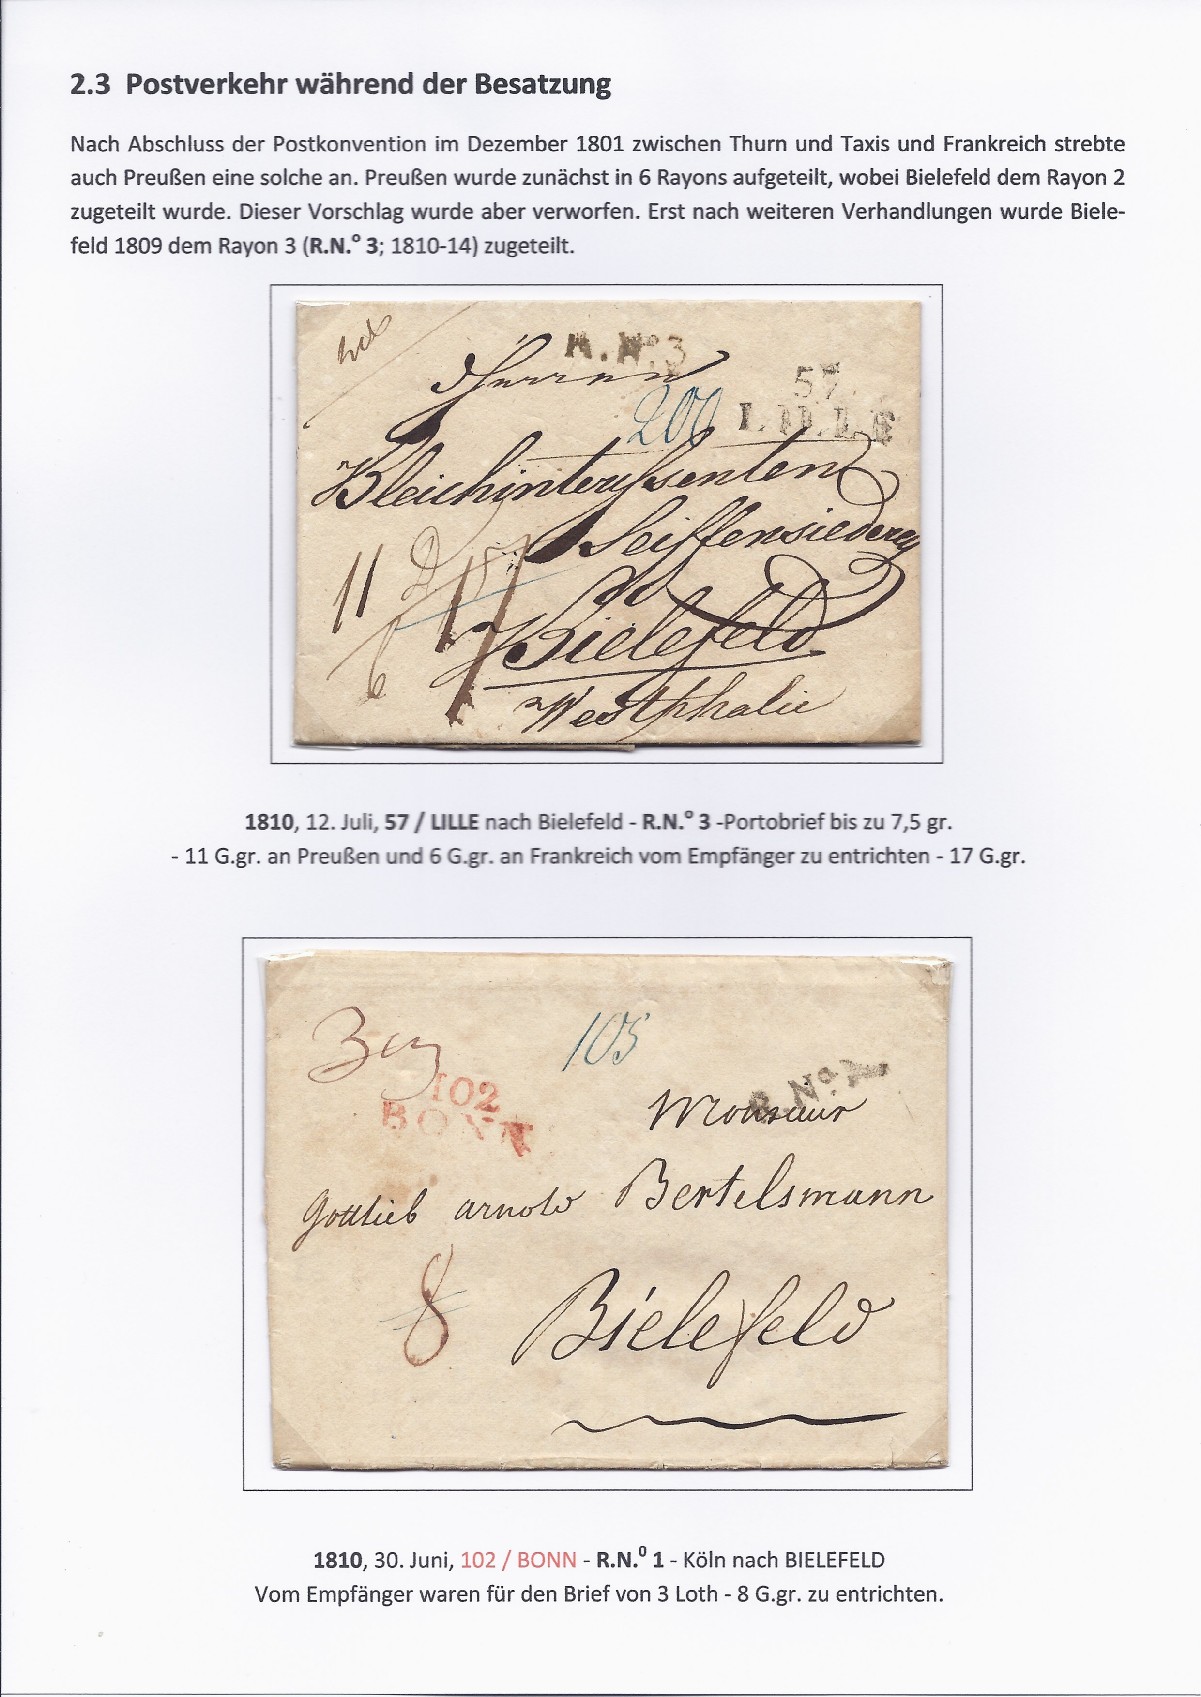 2.3 Postverkehr während der Besatzung
Nach Abschluss der Postkonvention im Dezember 1801 zwischen Thurn und Taxis und Frankreich strebte
auch Preußen eine solche an. Preußen wurde zunächst in 6 Rayons aufgeteilt, wobei Bielefeld dem Rayon 2
zugeteilt wurde. Dieser Vorschlag wurde aber verworfen. Erst nach weiteren Verhandlungen wurde Biele-
feld 1809 dem Rayon 3 (R.N.º 3; 1810-14) zugeteilt.
R.Nº.3
Herren
57
LILLE
200
Bleichinteressenten
Seiffensiederey
11
17
6
Bielefeld
Westphalie
1810, 12. Juli, 57 / LILLE nach Bielefeld - R.N.º 3 -Portobrief bis zu 7,5 gr.
- 11 G.gr. an Preußen und 6 G.gr. an Frankreich vom Empfänger zu entrichten - 17 G.gr.
105
102
BONN
R.Nº.1
Monsieur
Gottlieb Arnold Bertelsmann
8
Bielefeld
1810, 30. Juni, 102 / BONN - R.N.⁰ 1 - Köln nach BIELEFELD
Vom Empfänger waren für den Brief von 3 Loth - 8 G.gr. zu entrichten.